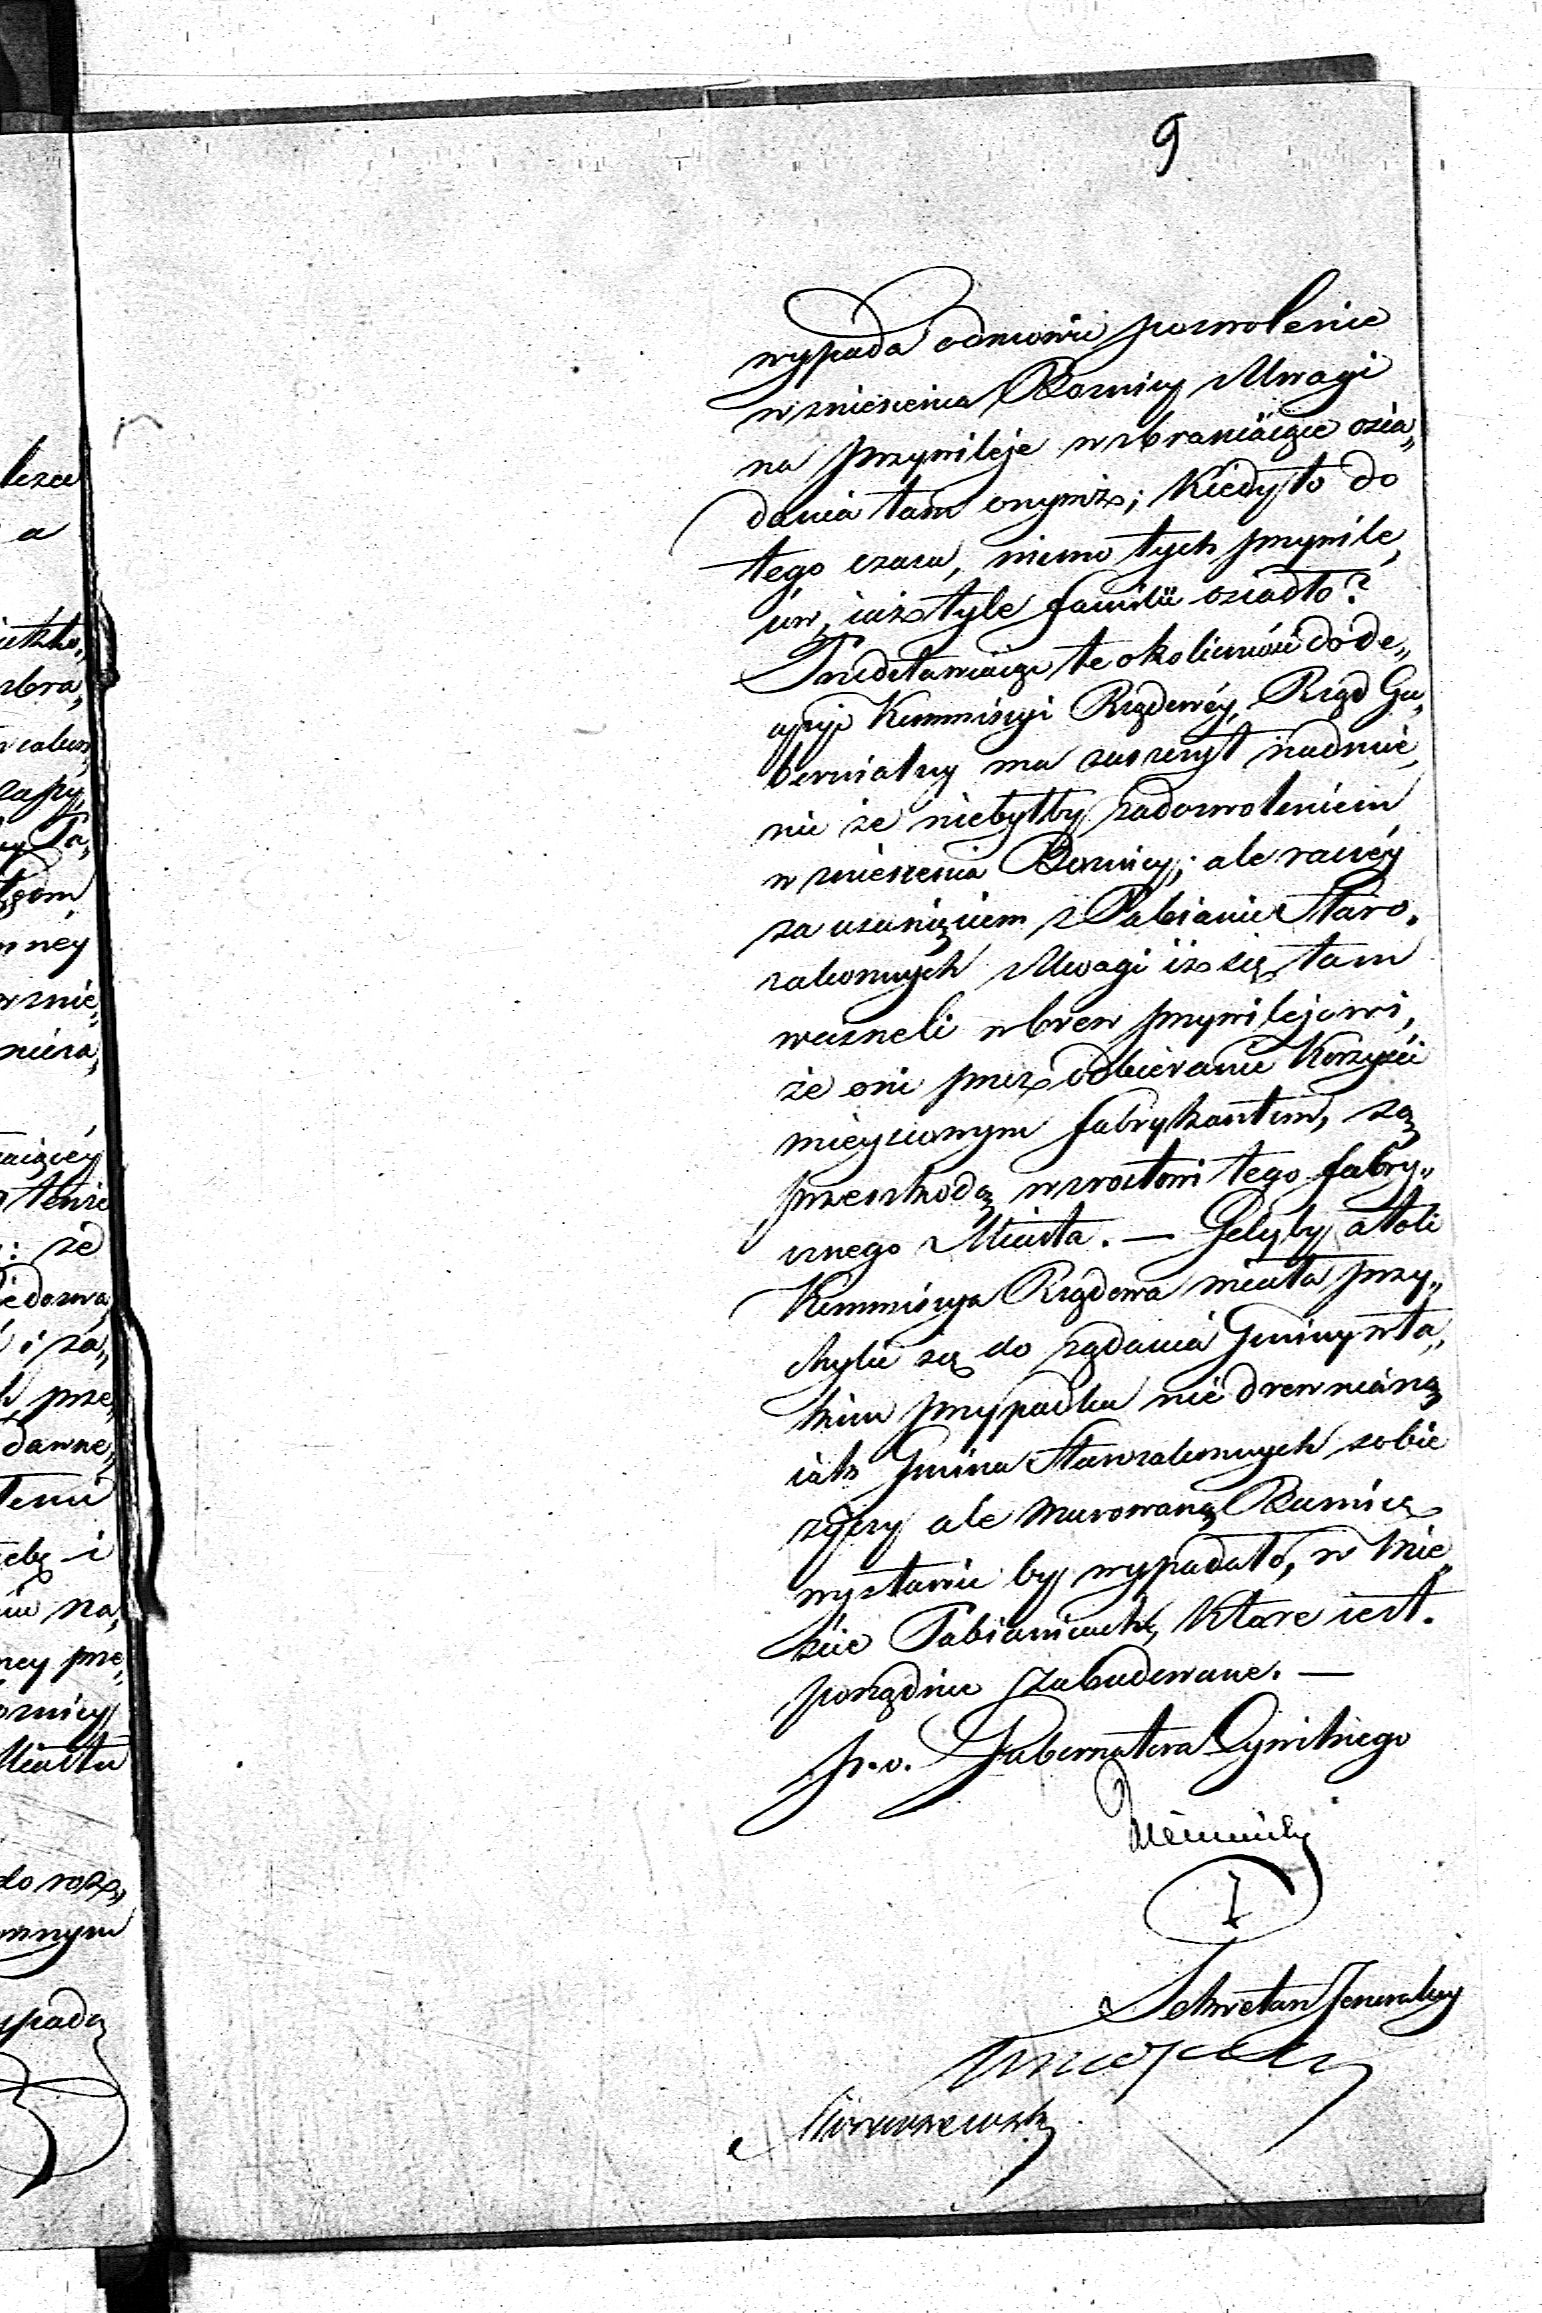 9
wypada odmówić pozwolenie
wzniesienia Bożnicy z Uwagi
na przywileje wzbraniaiące osia„
dania tam onymże; kiedy to do
tego czasu, mimo tych przywile„
iów, iuż tyle familii osiadło?
Przedstawiaiąc te okoliczności do de„
cyzyi Kommissyi Rządowéy, Rząd Gu„
bernialny ma zaszczyt nadmie„
nić że niebyłby za dozwoleniem
wzniesienia Bożnicy; ale raczéy
za usunięciem z Pabianic Staro„
zakonnych z Uwagi iż się tam
wcisneli wbrew przywilejowi,
że oni przez odbieranie korzyści
mieyscowym fabrykantom, są
przeszkodą wzrostowi tego fabry„
cznego Miasta. — Gdyby atoli
Kommissya Rządowa miała przy„
chylić się do żądania Gminy w ta„
kim przypadku nie drewnianą
iak Gmina Starozakonnych sobie
życzy ale murowaną Bożnicę
wystawić by wypadało, w Mie„
ście Pabianicach, które iest
porządnie zabudowane. —
p. o. Gubernatora Cywilnego
Sekretarz Jeneralny
lsze
a
zbra„
Pa„
wznie„
że
i za„
prze„
dawne„
i
na„
prze„
Miasta
do roz„